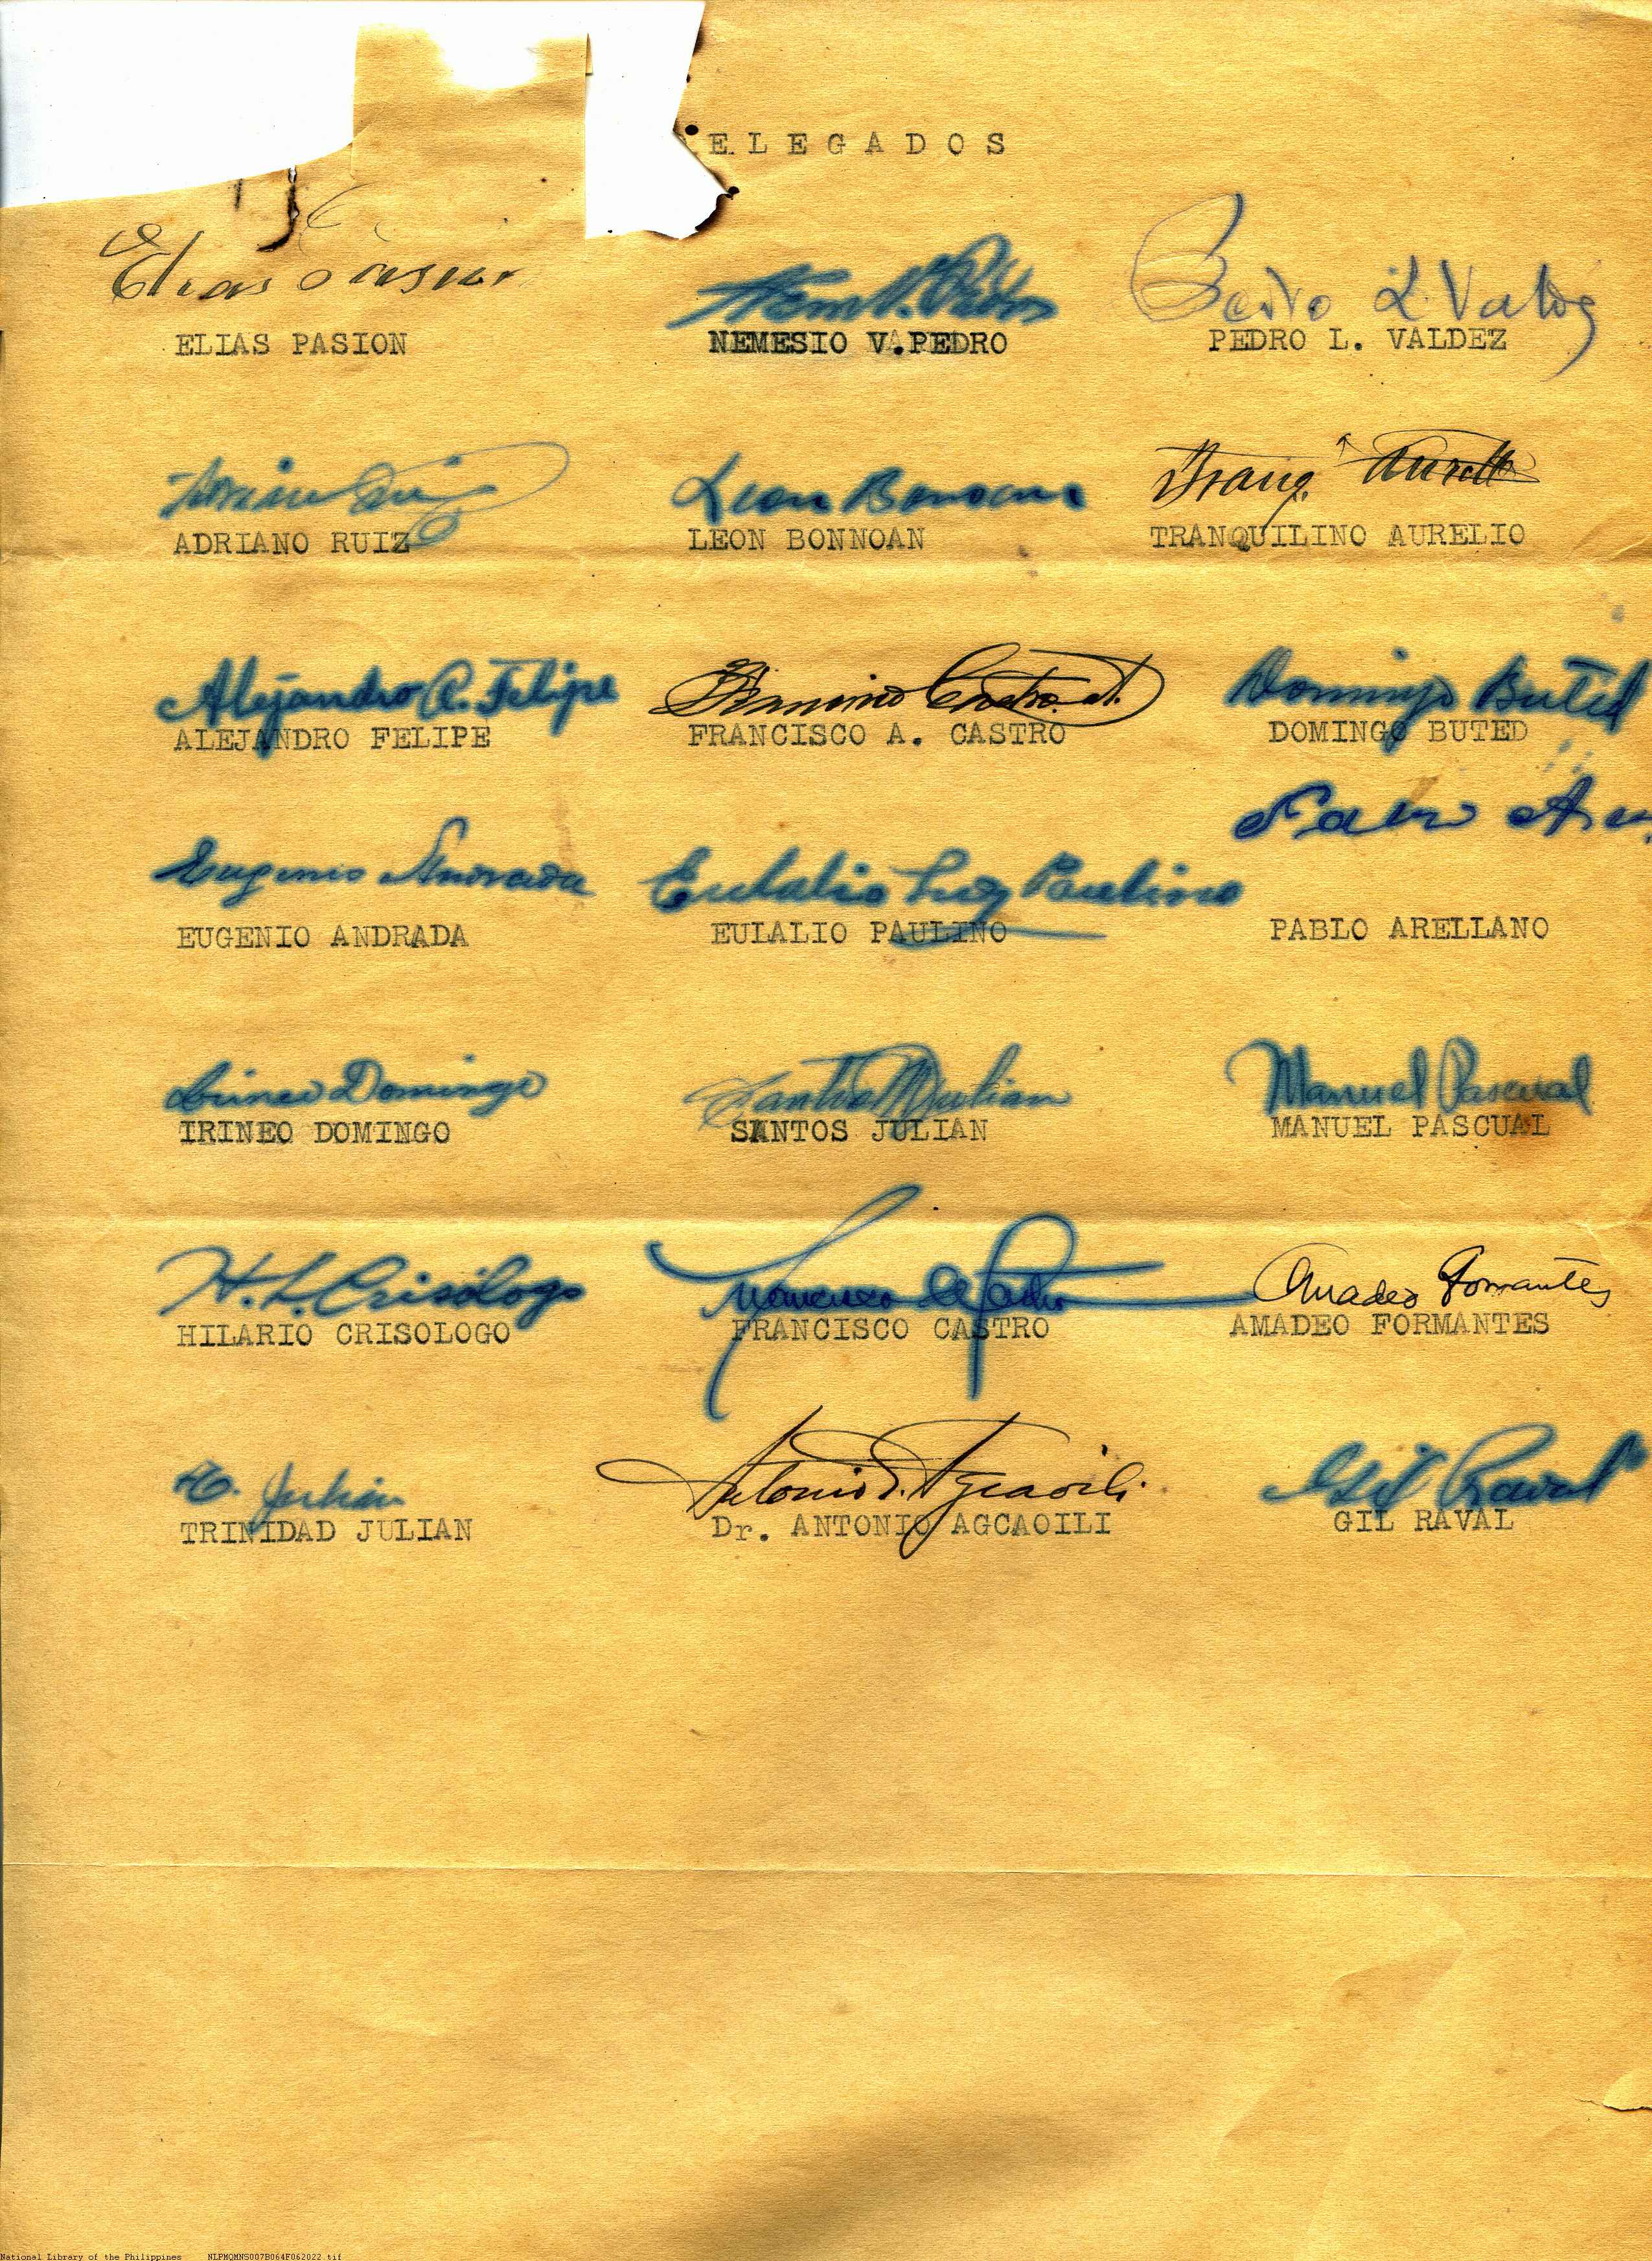 ELEGADOS
Elias Pasion
ELIAS PASION NEMESIO V. PEDRO PEDRO L. VALDEZ
Pedro L. Valdez
Leon Bonnoan Tranq. Aurelio
ADRIANO RUIZ LEON BONNOAN TRANQUILINO AURELIO
Alejandro A. Felipe Francisco Castro A. Domingo Buted
ALEJANDRO FELIPE FRANCISCO A. CASTRO DOMINGO BUTED
Eugenio Andrada Eulalio Paulino
EUGENIO ANDRADA EULALIO PAULINO PABLO ARELLANO
Irineo Domingo Santos Julian Manuel Pascual
IRINEO DOMINGO SANTOS JULIAN MANUEL PASCUAL
H. L. Crisólogo Francisco de Castro Amadeo Formantes
HILARIO CRISOLOGO FRANCISCO CASTRO AMADEO FORMANTES
T. Julian Antonio Agcaoili Gil Raval
TRINIDAD JULIAN Dr. ANTONIO AGCAOILI GIL RAVAL
National Library of the Philippines NLPMQMNS007B064F062022.tif